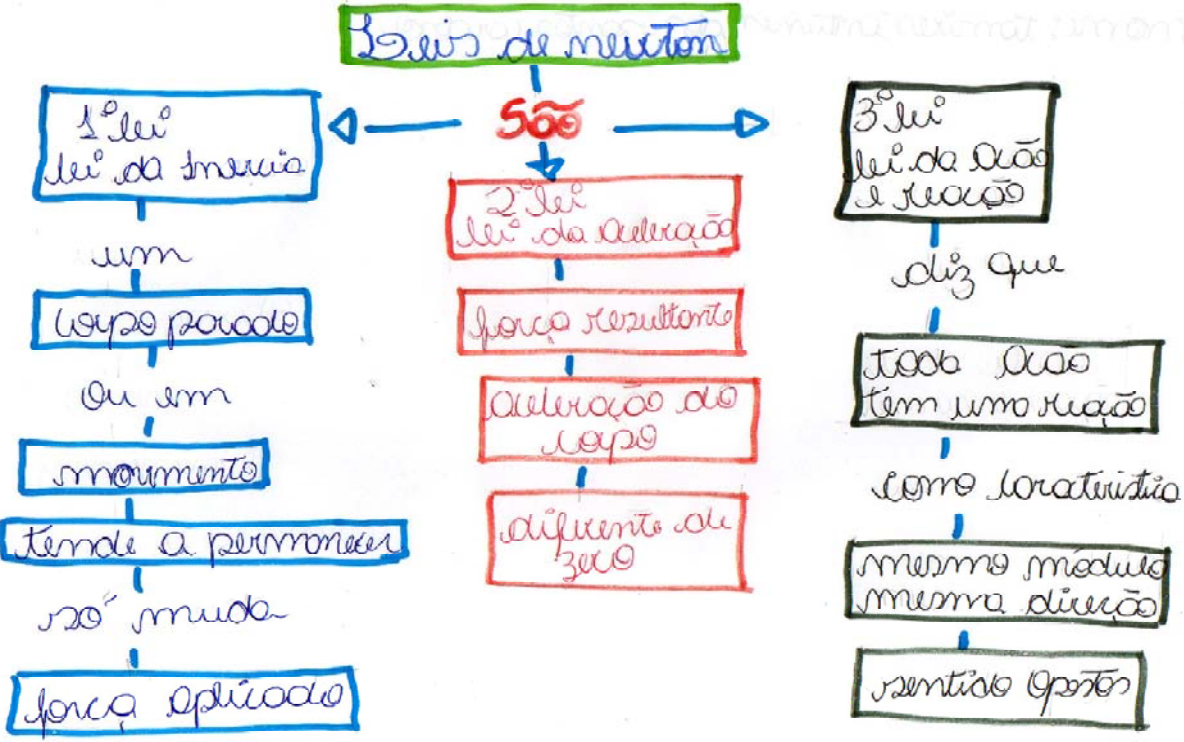 Leis de newton
São
1º lei
lei da Inercia
um
corpo parado
ou em
movimento
tende a permanecer
só muda
força aplicada
2º lei
lei da aceleração
força resultante
aceleração do
copo
diferente de
zero
3º lei
lei da ação
e reação
diz que
toda ação
tem uma reação
como caracteristica
mesmo módulo
mesma direção
sentido opostos